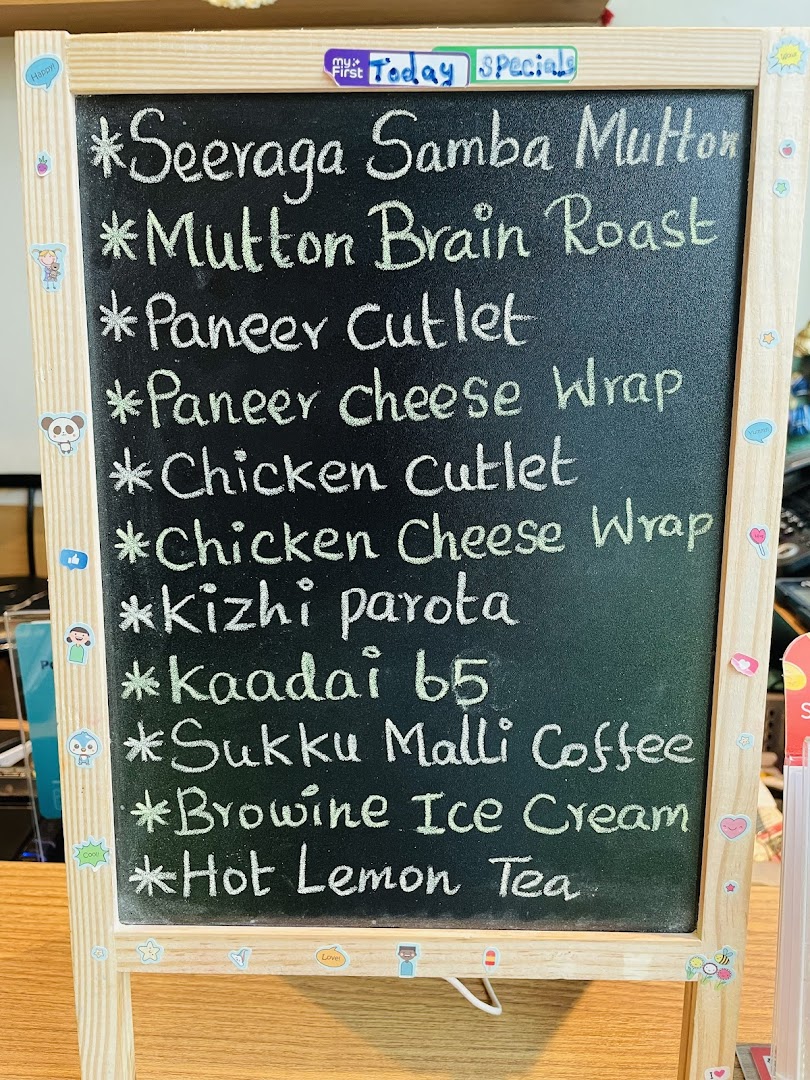 Happy!
my First Today Specials
Wow!
*Seeraga Samba Mutton
*Mutton Brain Roast
*Paneer Cutlet
*Paneer cheese Wrap
*Chicken Cutlet
*Chicken Cheese Wrap
*Kizhi parota
*Kaadai 65
*Sukku Malli Coffee
*Browine Ice Cream
*Hot Lemon Tea
Cool!
Love!
I